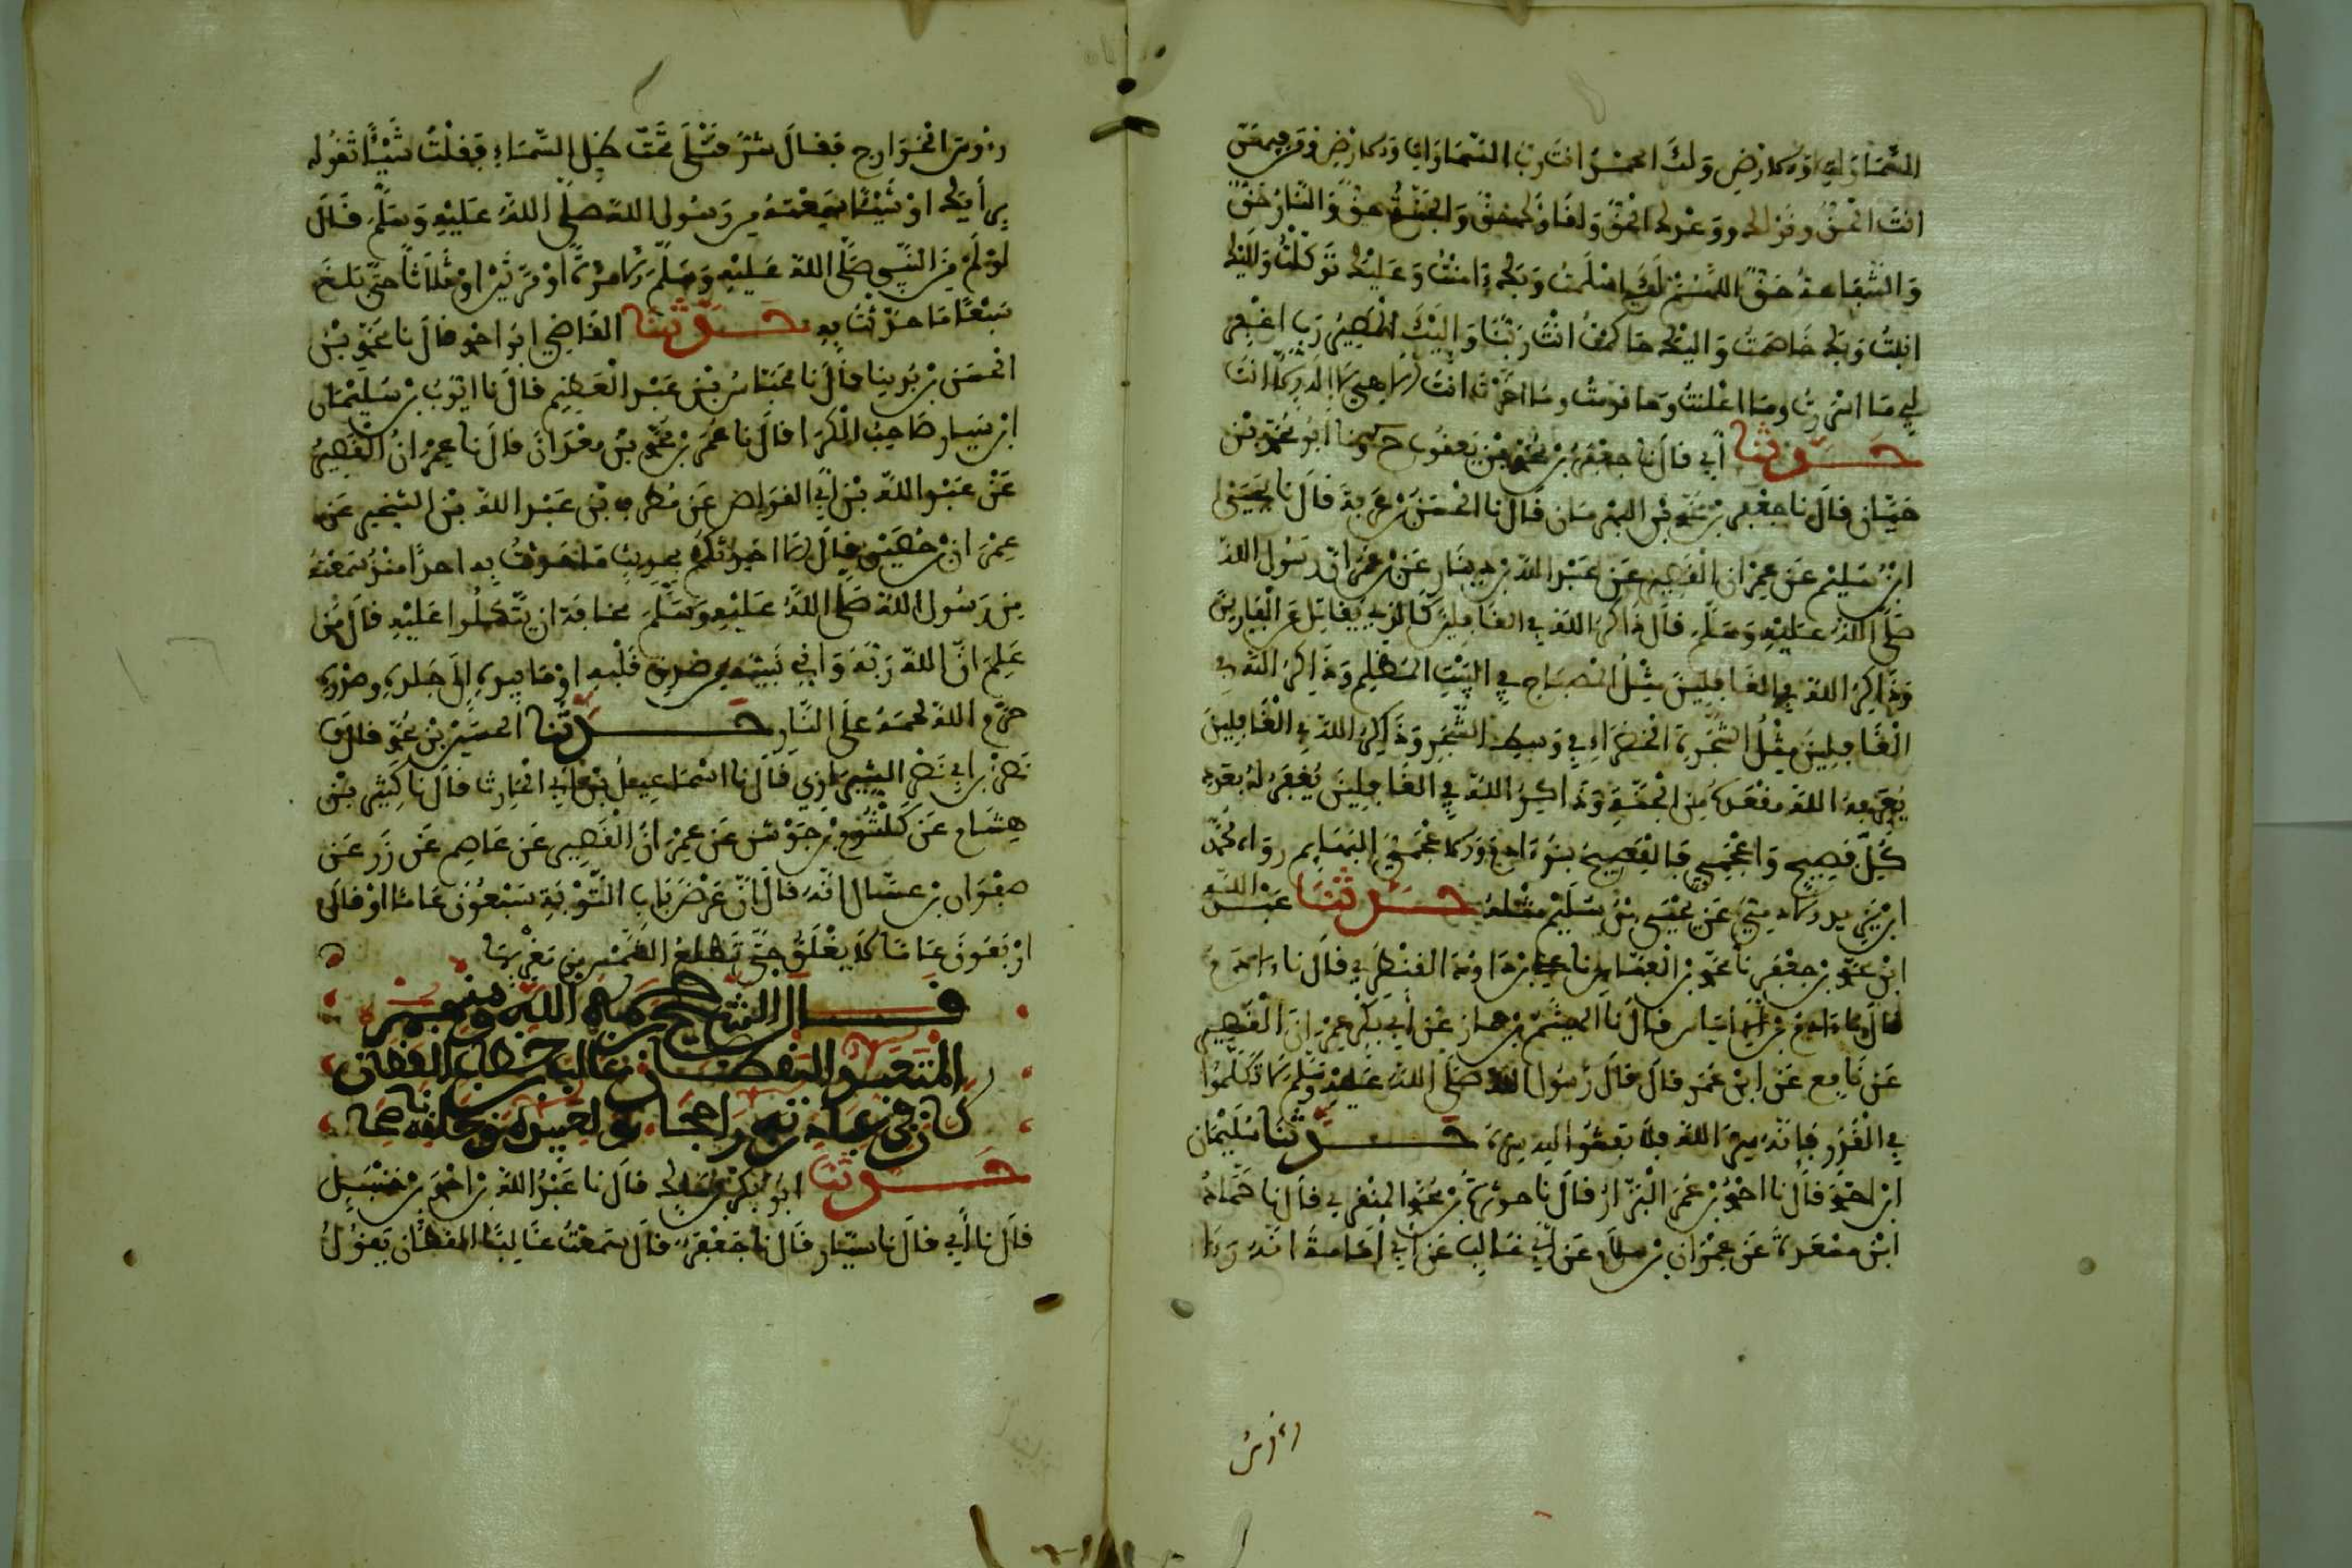 السماوات والارض ولك الحمد انت رب السماوات والارض ومن فيهن
انت الحق وقولك ووعدك الحق ولقاؤك حق والجنة حق والنار حق
والشفاعة حق اللهم لك اسلمت وبك ءامنت وعليك توكلت واليك
انبت وبك خاصمت واليك حاكمت انت ربنا واليك المصير رب اغفر
لي ما اسررت وما اعلنت وما قدمت وما اخرت انت الاهي لا اله الا انت
حدثنا أبي قال نا جعفر بن محمد بن يعقوب ح ونا ابو محمد بن
حيان قال نا جعفر بن محمد قال نا الحسن بن عرفة قال نا يحيى
ابن سليم عن عمران القصير عن عبد الله بن دينار عن بن عمر ان رسول الله
صلى الله عليه وسلم قال ذاكر الله في الغافلين كالذي يقاتل عن الفارين
وذاكر الله في الغافلين مثل المصباح في البيت المظلم وذاكر الله في
الغافلين مثل الشجرة الخضراء في وسط الشجر وذاكر الله في الغافلين
يعرفه الله مقعده من الجنة وذاكر الله في الغافلين يغفر له بعدد
كل فصيح واعجمي فالفصيح بنو ءادم والاعجمي البهايم رواه محمد
ابن يزيد الادمي عن يحيى بن سليم مثله حدثنا عبد الله
ابن محمد بن جعفر نا محمد بن العباس نا علي بن داود القنطري قال نا ءادم
قال نا ءادم بن أبي اياس قال نا الهيثم بن جماز عن أبي بكر عمران القصير
عن نافع عن ابن عمر قال قال رسول الله صلى الله عليه وسلم لا تكلموا
في القدر فانه سر الله فلا تفشوا لله سره حدثنا سليمان
ابن احمد قال نا احمد بن عمر البزار قال نا حوثرة بن محمد المنقري قال نا حماد
ابن مسعدة عن عمران بن مسلم عن أبي غالب عن أبي أمامة انه رءا
رءوس
رءوس الخوارج فقال شر قتلى تحت ظل السماء فقلت شيئا تقوله
برأيك او شيئا سمعته من رسول الله صلى الله عليه وسلم قال
لو لم من النبي صلى الله عليه وسلم الا مرة او مرتين او ثلاثا حتى بلغ
سبعا ما حدثت به حدثنا القاضي ابو احمد قال نا محمد بن
الحسن بن بدينا قال نا عباس بن عبد العظيم قال نا ايوب بن سليمان
ابن سيار صاحب الكرا قال نا عمر بن محمد بن معدان قال نا عمران القصير
عن عبد الله بن أبي القواص عن مطرف بن عبد الله بن الشخير عن
عمران بن حصين قال الا احدثكم بحديث ما حدثت به احدا منذ سمعته
من رسول الله صلى الله عليه وسلم مخافة ان يتكلوا عليه قال من
علم ان الله ربه واني نبيه من صدق قلبه او ما بيده الى جلده وصدره
حرم الله لحمه على النار حدثنا الحسين بن محمد قال نا
نصر بن ابي نصر الشيرازي قال نا اسماعيل بن أبي الحارث قال نا كثير بن
هشام عن كلثوم بن جوشن عن عمران القصير عن عاصم عن زر عن
صفوان بن عسال انه قال ان عرض باب التوبة سبعون عاما او قال
اربعون عاما لا يغلق حتى تطلع الشمس من مغربها
قال الشيخ رحمه الله ومنهم
المتعبد اليقظان غالب القطان
كان في عبادته
حدثنا ابو بكر بن مالك قال نا عبد الله بن احمد بن حنبل
قال نا أبي قال نا سيار قال نا جعفر قال سمعت غالبا القطان يقول